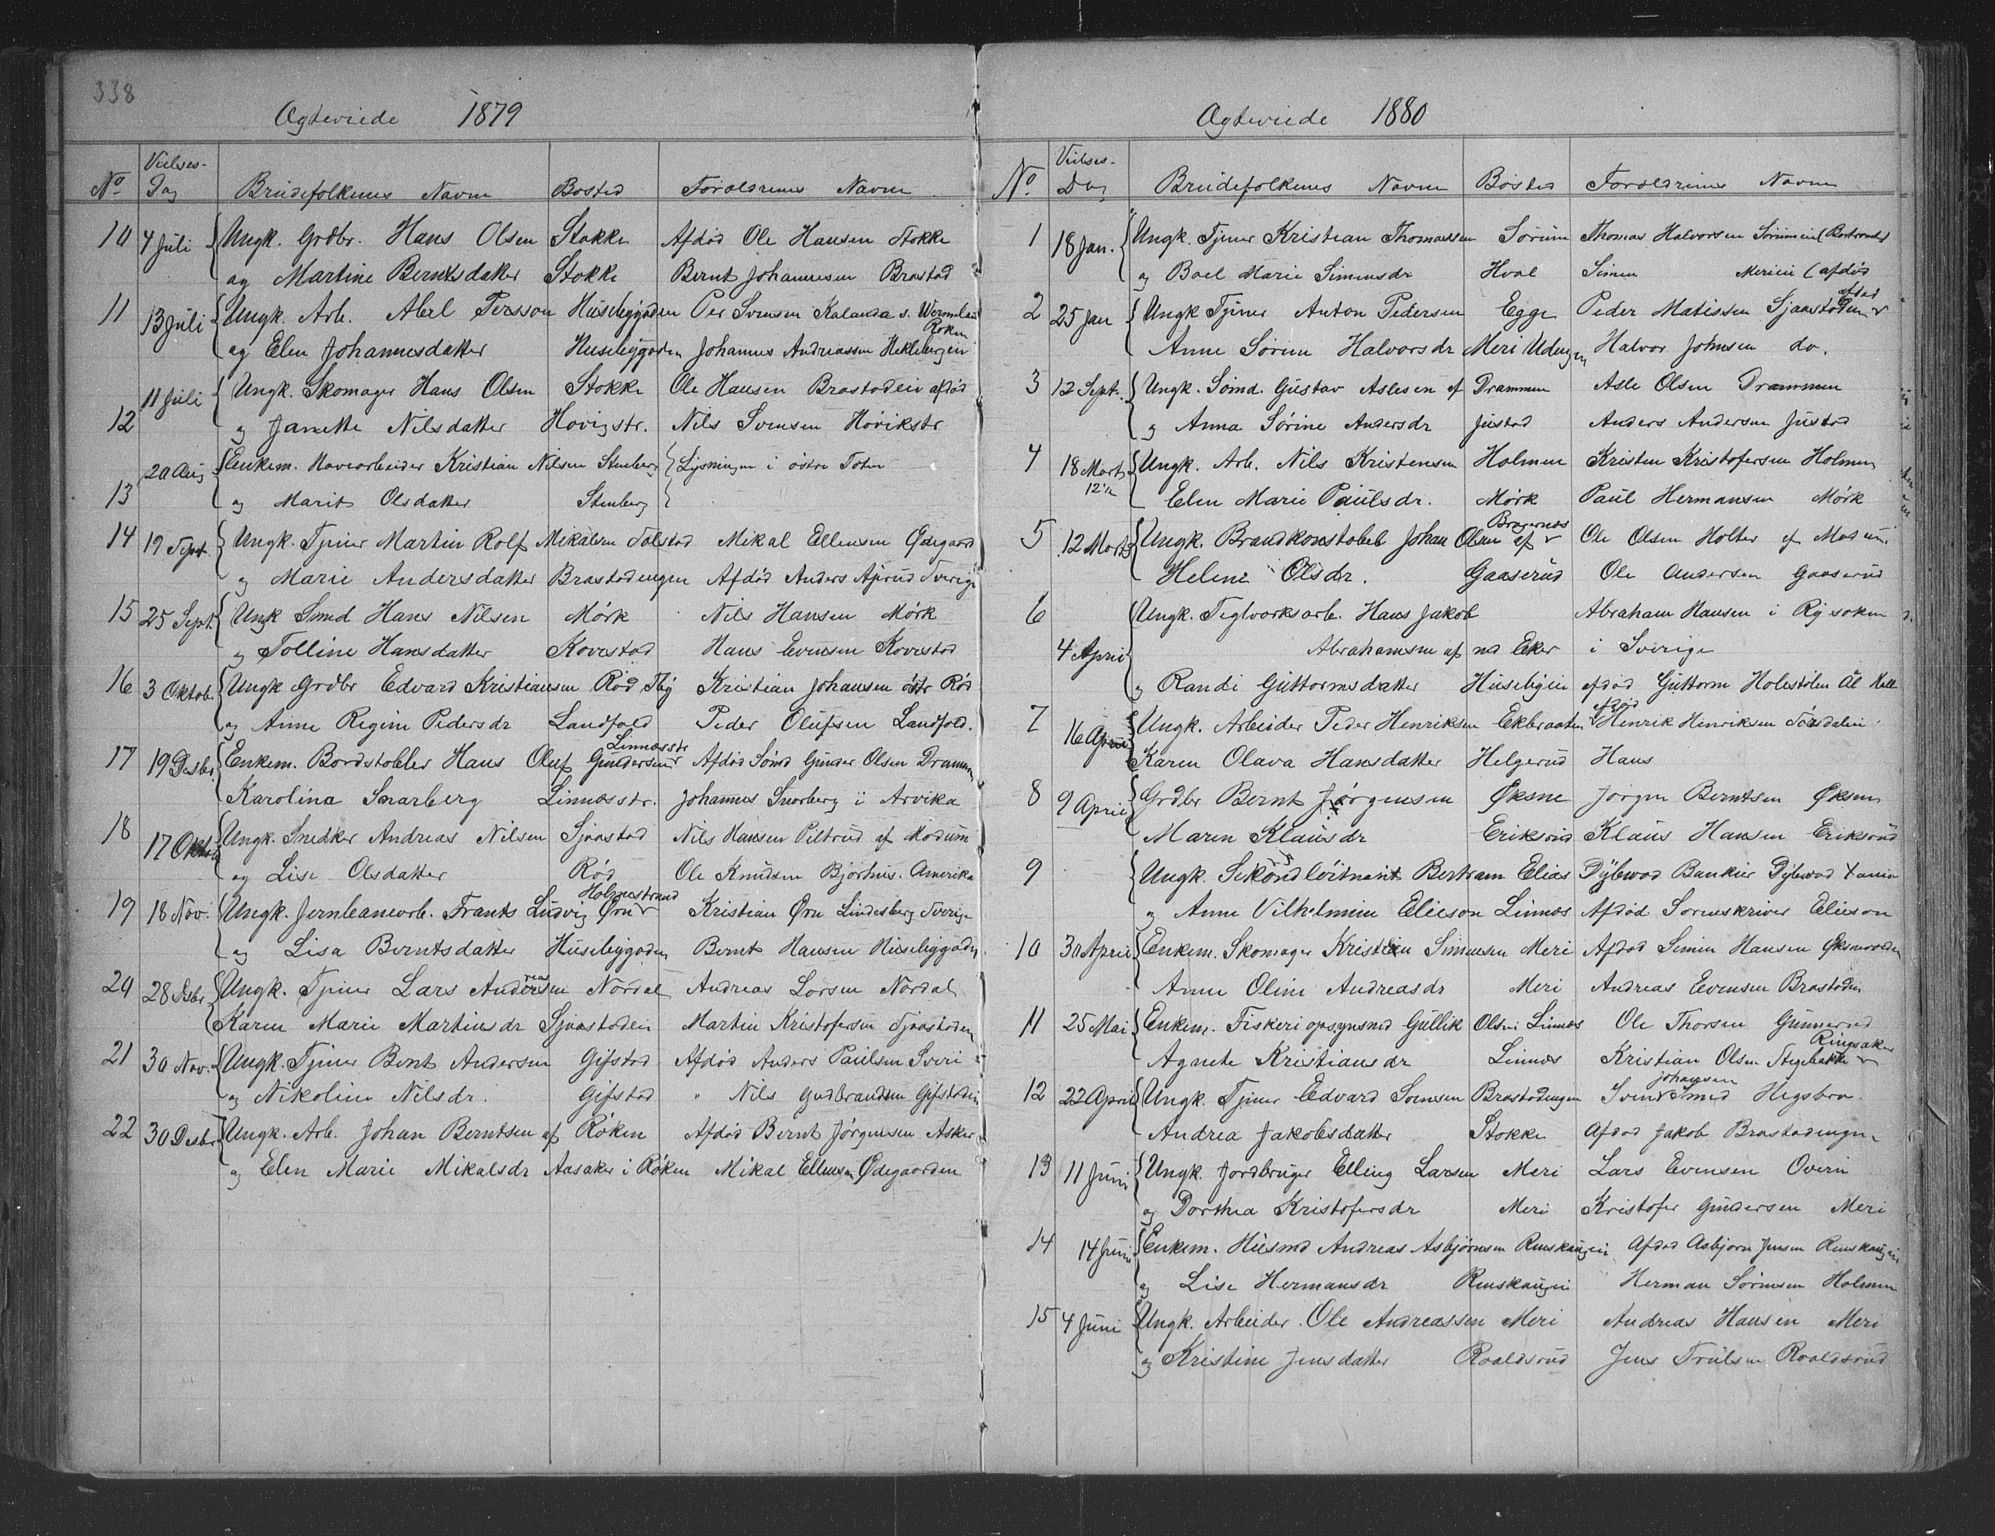 338
Ægteviede 1879
No Vielses-Dag Brudefolkenes Navne Bosted Foroldrenes Navne
10 4 Juli Ungk. Grdbr. Hans Olsen Stokke Afdød Ole Hansen Stokke
og Martine Berntsdatter Stokke Bernt Johannesen Brastad
11 13 Juli Ungk. Arb. Abel Persson Husebygaden Per Svensen s. Wermland
Røken
og Elen Johannesdatter Husebygaden Johannes Andreassen Heklebergen
12 11 Juli Ungk. Skomager Hans Olsen Stokke Ole Hansen Brastaden afdød
og Janette Nilsdatter Hovigstr. Nils Svensen Hövikstr
13 20 Aug Enkem. Kristian Nilsen Stenberg Lysningen i östre Toten
og Marit Olsdatter Stenberg
14 19 Sept. Ungk. Tjener Martin Rolf Mikalsen Tolstad Mikal Ellensen Ødegaard
og Marie Andersdatter Brastadengen Afdød Anders Sverige
15 25 Sept. Ungk Smed Hans Nilsen Mørk Nils Hansen Mørk
og Tolline Hansdatter Kovestad Hans Evensen Kovestad
16 3 Oktob. Ungk Grdbr Edvard Kristiansen Rød Kristian Johansen östr Rød
og Anne Regine Pedersdr Landfald Peder Olufsen Landfald.
Linnæsstr
17 19 Desbr Enkem. Bordstabler Hans Oluf Gundersen Afdød Sømd Gunder Olsen Drammen
Karolina Snarberg Linnæsstr. Johannes Snorberg i Arvika
18 17 Oktob Ungk. Snedker Andreas Nilsen Sjaastad Nils Hansen Piltrud af Modum
og Lise Olsdatter Rød Ole Knudsen Bjørhus. Amerika
Holmestrand
19 18 Nov. Ungk. Jernbanearb. Frants Ludvig Ørn Kristian Ørn Lindesberg Sverige
og Lisa Berntsdatter Husebygaden Bernt Hansen Husebygaden
20 28 Desbr Ungk. Tjener Lars Andreasen Nordal Andreas Larsen Nordal
Karen Marie Martinsdr Sjaastaden Martin Kristofersen Sjaastaden
21 30 Nov. Ungk. Tjener Bent Andersen Gifstad Afdød Anders Paulsen Sveri
og Nikoline Nilsdr. Gifstad " Nils Gudbrandsen Gifstaden
22 30 Desbr Ungk. Arb. Johan Berntsen af Røken Afdød Bernt Jørgensen Asker
og Elen Marie Mikalsdr Aasaker i Røken Mikal Ellensen Ødegaarden
Ægteviede 1880
No. Vielses-Dag Brudefolkenes Navne Bosted Foroldrenes Navne
1 18 Jan. Ungk. Tjener Kristian Thomassen Sørum Thomas Halvorsen Sørumeie
og Boel Marie Simensdr Hval Simen Merieie (afdød
afdød
2 25 Jan Ungk Tjener Anton Pedersen Egge Peder Matissen Sjaastaden
Anne Sørine Halvorsdr Meri Udengen Halvor Johnsen do.
3 12 Sept. Ungk. Sømd. Gustav Aslesen af Drammen Asle Olsen Drammen
og Anna Sørine Andersdr Justad Anders Andersen Justad
4 18 Marts 12½ Ungk. Arb. Nils Kristensen Holmen Kristen Kristofersen Holmen
Elen Marie Paulsdr. Mørk Paul Hermansen Mørk
Bragernæs
5 12 Marts Ungk. Brandkonstabel Johan Olsen af Ole Olsen Holter af Modum
Helene Olsdr. Gaaserud Ole Andersen Gaaserud
6 4 April Ungk. Teglværksarb. Hans Jakob Abraham Hansen i Ryssoken
Abrahamsen af nd Eker i Sverige
og Randi Guttormsdatter Husebyeie afdød Guttorm Holestølen Ål Hall
afdød
7 16 April Ungk. Arbeider Peder Henriksen Ekbraaten Henrik Henriksen Torsdalen
Karen Olava Hansdatter Helgerud Hans
8 9 April Grdbr Bernt Jørgensen Øksne Jørgen Berntsen Øksne
Maren Klausdr Eriksrud Klaus Hansen Eriksrud
9 Ungk. Sekondløitnant Bertram Elias Dybwad Bankier Dybwad Xania
og Anne Vilhelmine Elieson Linnæs Afdød Sorenskriver Elieson
10 30 April Enkem. Skomager Kristian Simensen Meri Afdød Simen Hansen
Anne Oline Andreasdr Meri Andreas Evensen Brastaden
11 25 Mai Enkem. Fiskeriopsynsmd Gullik Olsen Linnæs Ole Thorsen Gunnerud
Ringsaker
Agnete Kristiansdr Linnæs Kristian Olsen Stegebakke
johansen
12 22 April Ungk. Tjener Edvard Svensen Brastadengen Sven Smed Hegsbro
Andrea Jakobsdatter Stokke Afdød Jakob Brastadengen
13 11 Juni Ungk. Jordbruger Elling Larsen Meri Lars Evensen Overn
og Dorthea Kristofersdr Meri Kristofer Gundersen Meri
14 14 Juni Enkem. Husmd Andreas Asbjørnsen Renskaugen Afdød Asbjørn Jensen Renskaugen
og Lise Hermansdr Renskaugen Herman Sørensen Holmen
15 4 Juni Ungk. Arbeider Ole Andreassen Meri Andreas Hansen Meri
og Kristine Jensdatter Roaldsrud Jens Trulsen Roaldsrud